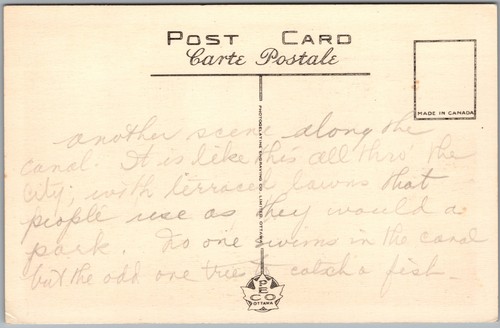 POST CARD
Carte Postale
MADE IN CANADA
PHOTOGELATINE ENGRAVING CO. LIMITED, OTTAWA
another scene along the
canal. It is like this all thro' the
city; with terraced lawns that
people use as they would a
park. No one swims in the canal
but the odd one tries to catch a fish.
PECO
OTTAWA